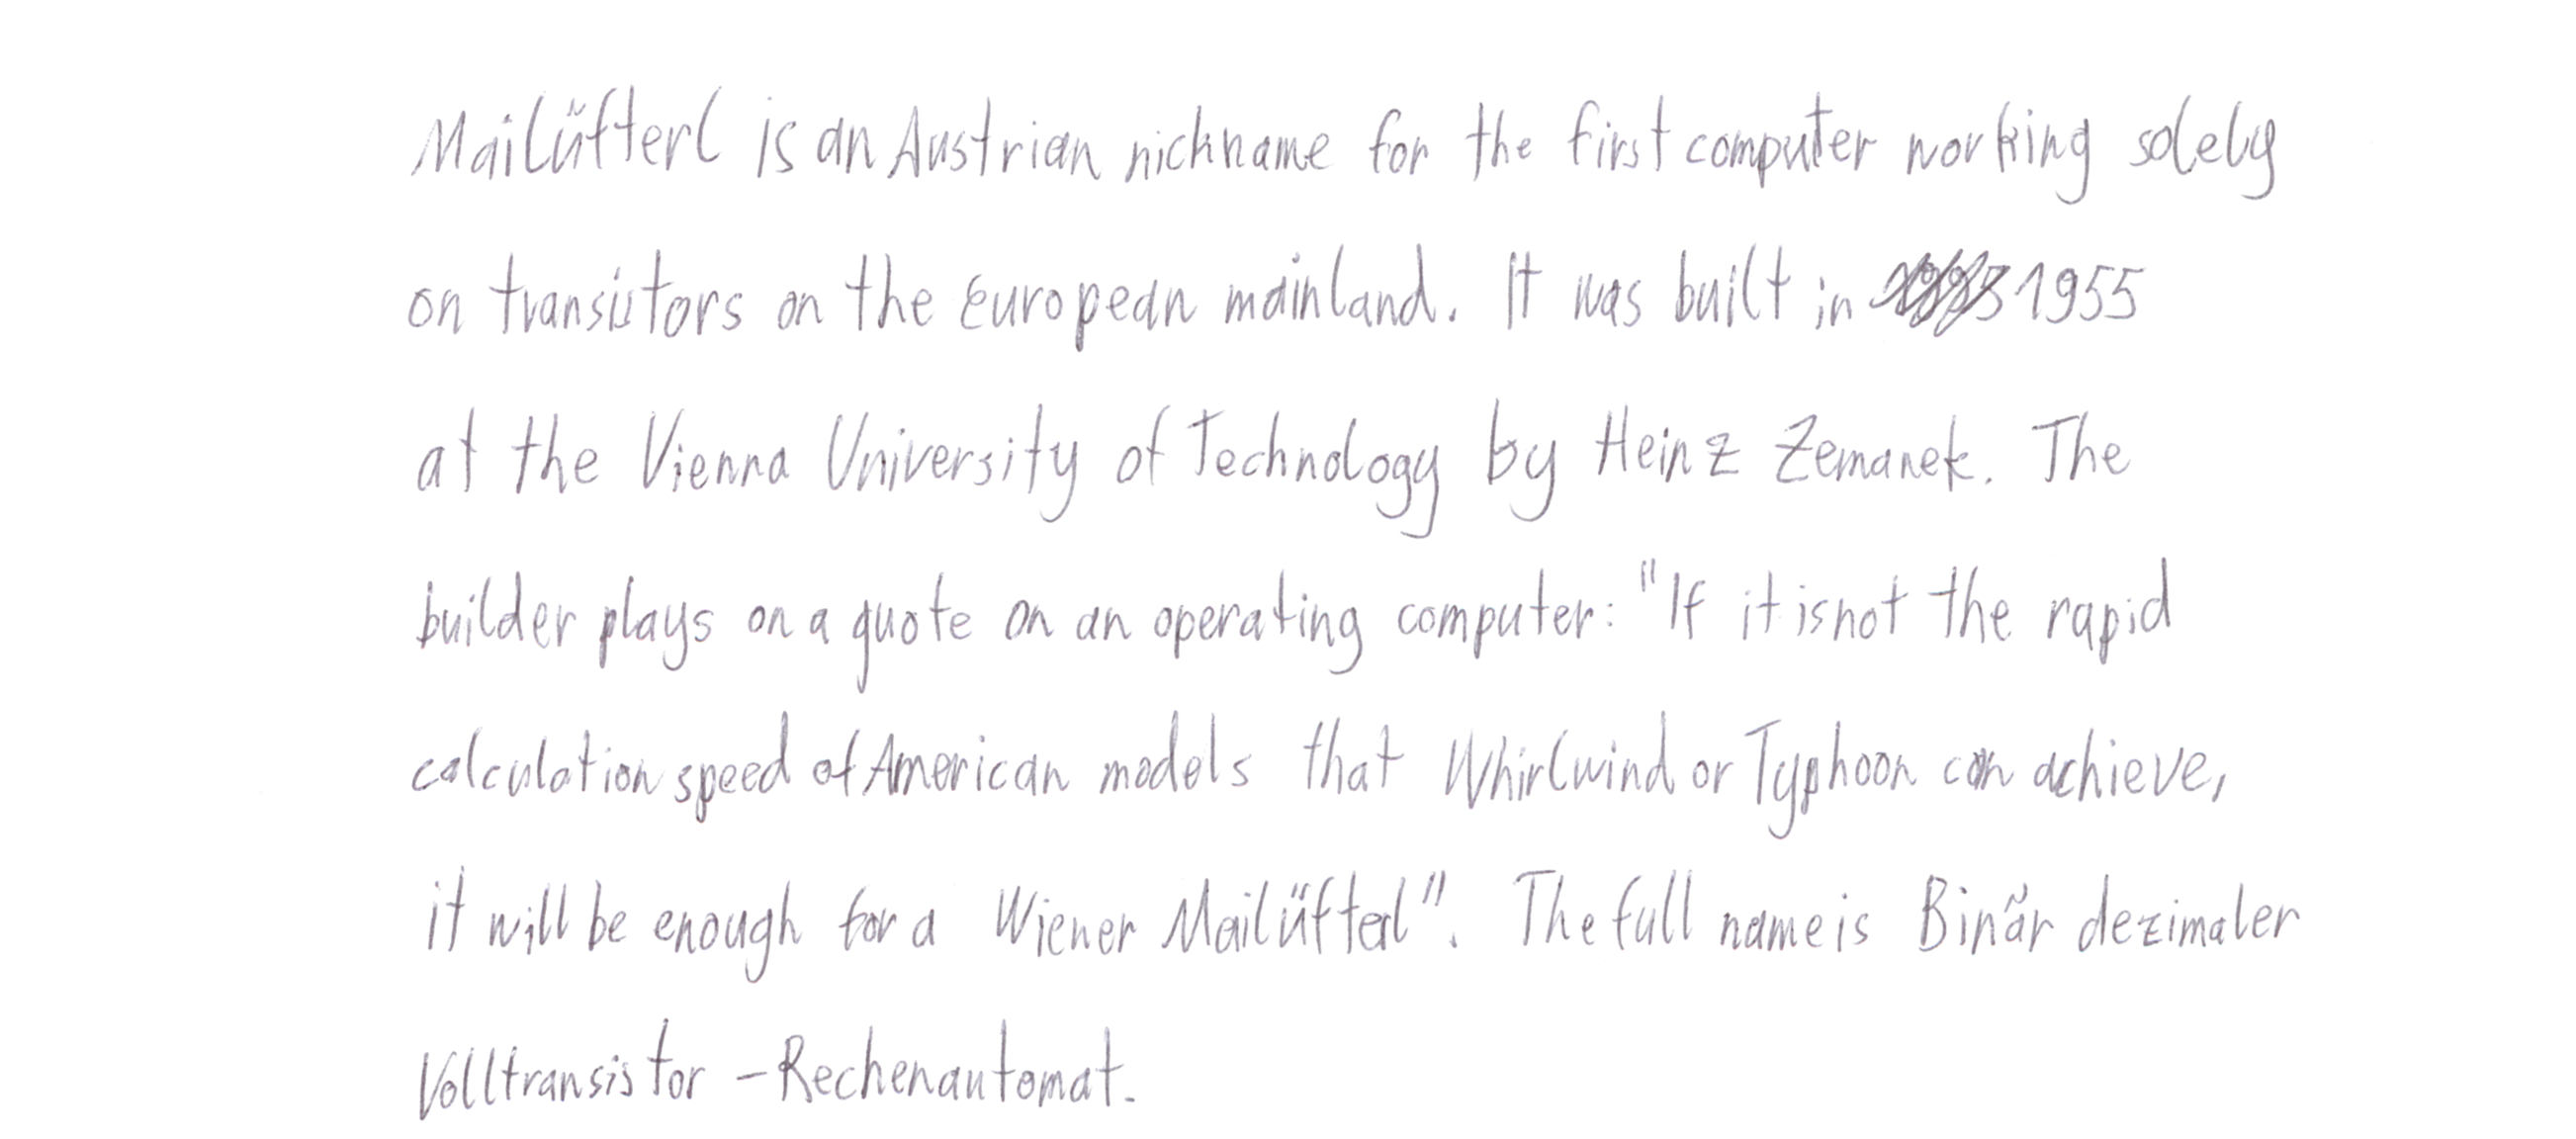 Mailüfterl is an Austrian nickname for the first computer working solely
on transistors on the European mainland. It was built in 1955
at the Vienna University of Technology by Heinz Zemanek. The
builder plays on a quote on an operating computer: "If it is not the rapid
calculation speed of American models that Whirlwind or Typhoon can achieve,
it will be enough for a Wiener Mailüfterl". The full name is Binär dezimaler
Volltransistor - Rechenautomat.